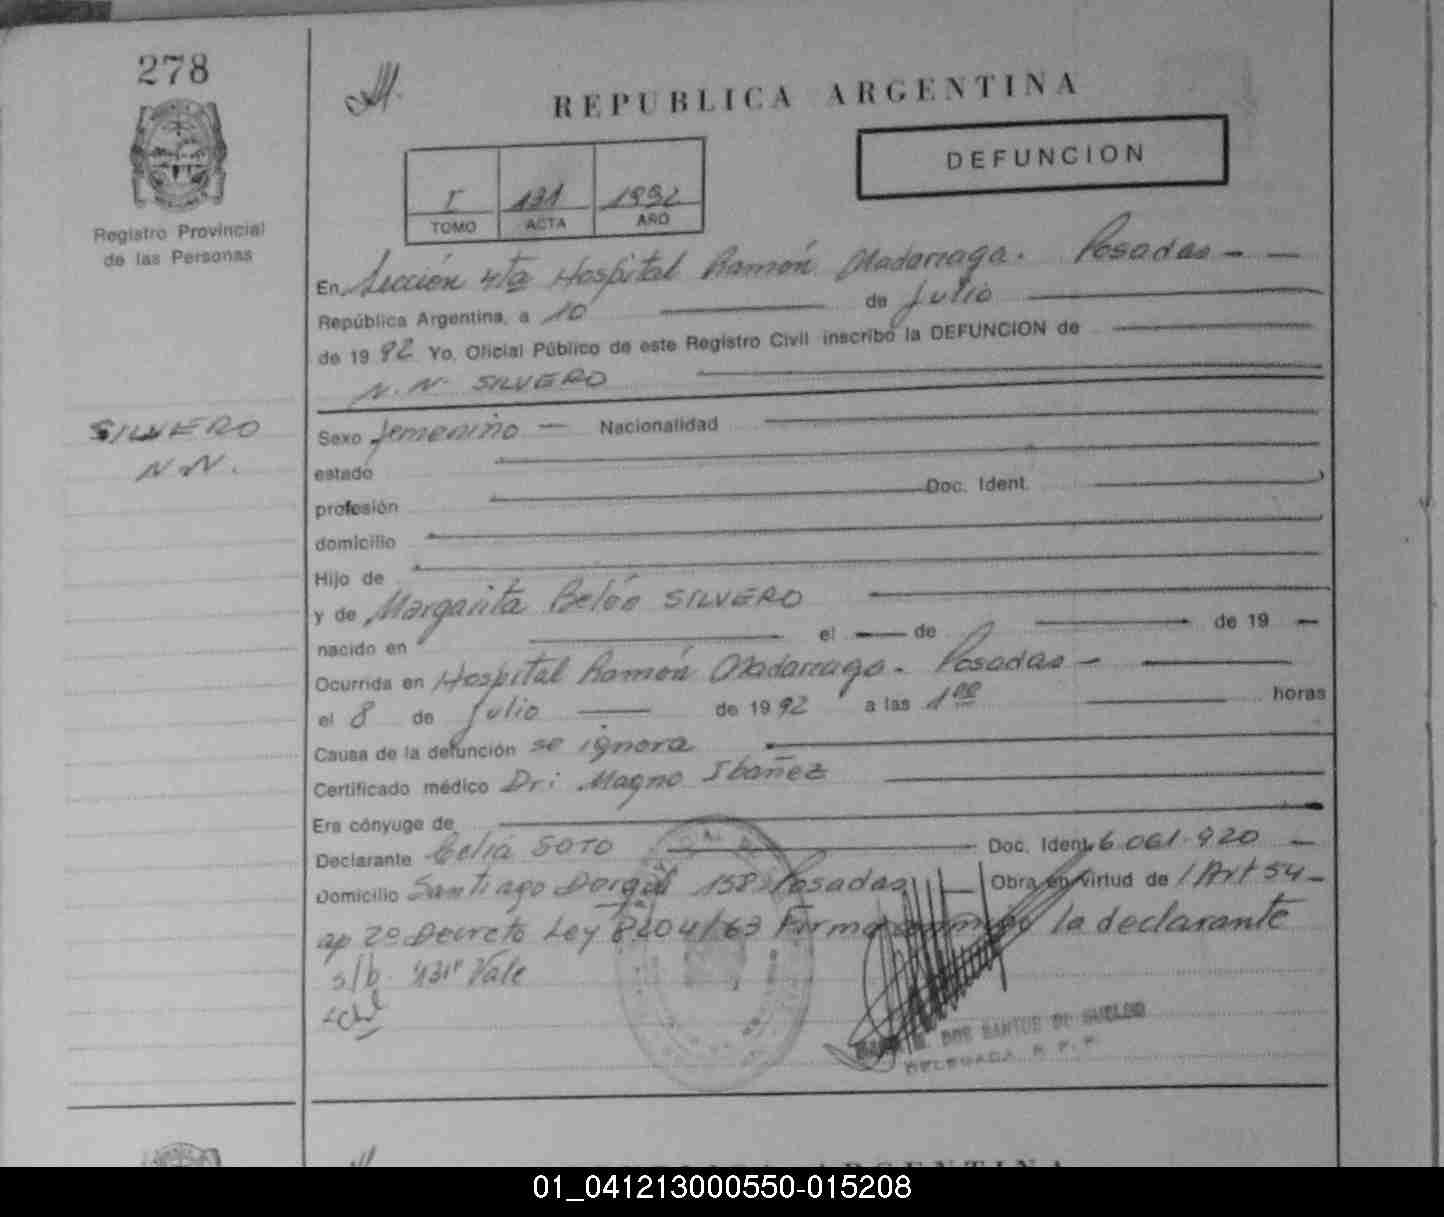 278
REPUBLICA ARGENTINA
DEFUNCION
I 131 1992
TOMO ACTA AÑO
Registro Provincial
de las Personas
En Sección 4ta Hospital Ramón Madariaga. Posadas
República Argentina, a 10 de Julio
de 1992 Yo, Oficial Público de este Registro Civil inscribo la DEFUNCION de
N.N. SILVERO
SILVERO
N.N.
Sexo femenino Nacionalidad
estado
profesión Doc. Ident.
domicilio
Hijo de
y de Margarita Belén SILVERO
nacido en el de de 19
Ocurrida en Hospital Ramón Madariaga. Posadas
el 8 de Julio de 1992 a las 1 00 horas
Causa de la defunción se ignora
Certificado médico Dr: Magno Ibañez
Era cónyuge de
Declarante Celia SOTO Doc. Ident. 6.061.920
Domicilio Santiago 158 Posadas Obra en virtud de Art 54
ap 2º Decreto Ley 8204/63 Firma conmigo la declarante
s/b "131" Vale
DOS SANTOS DE
DELEGADA R. P. P.
REPUBLICA ARGENTINA
01_041213000550-015208